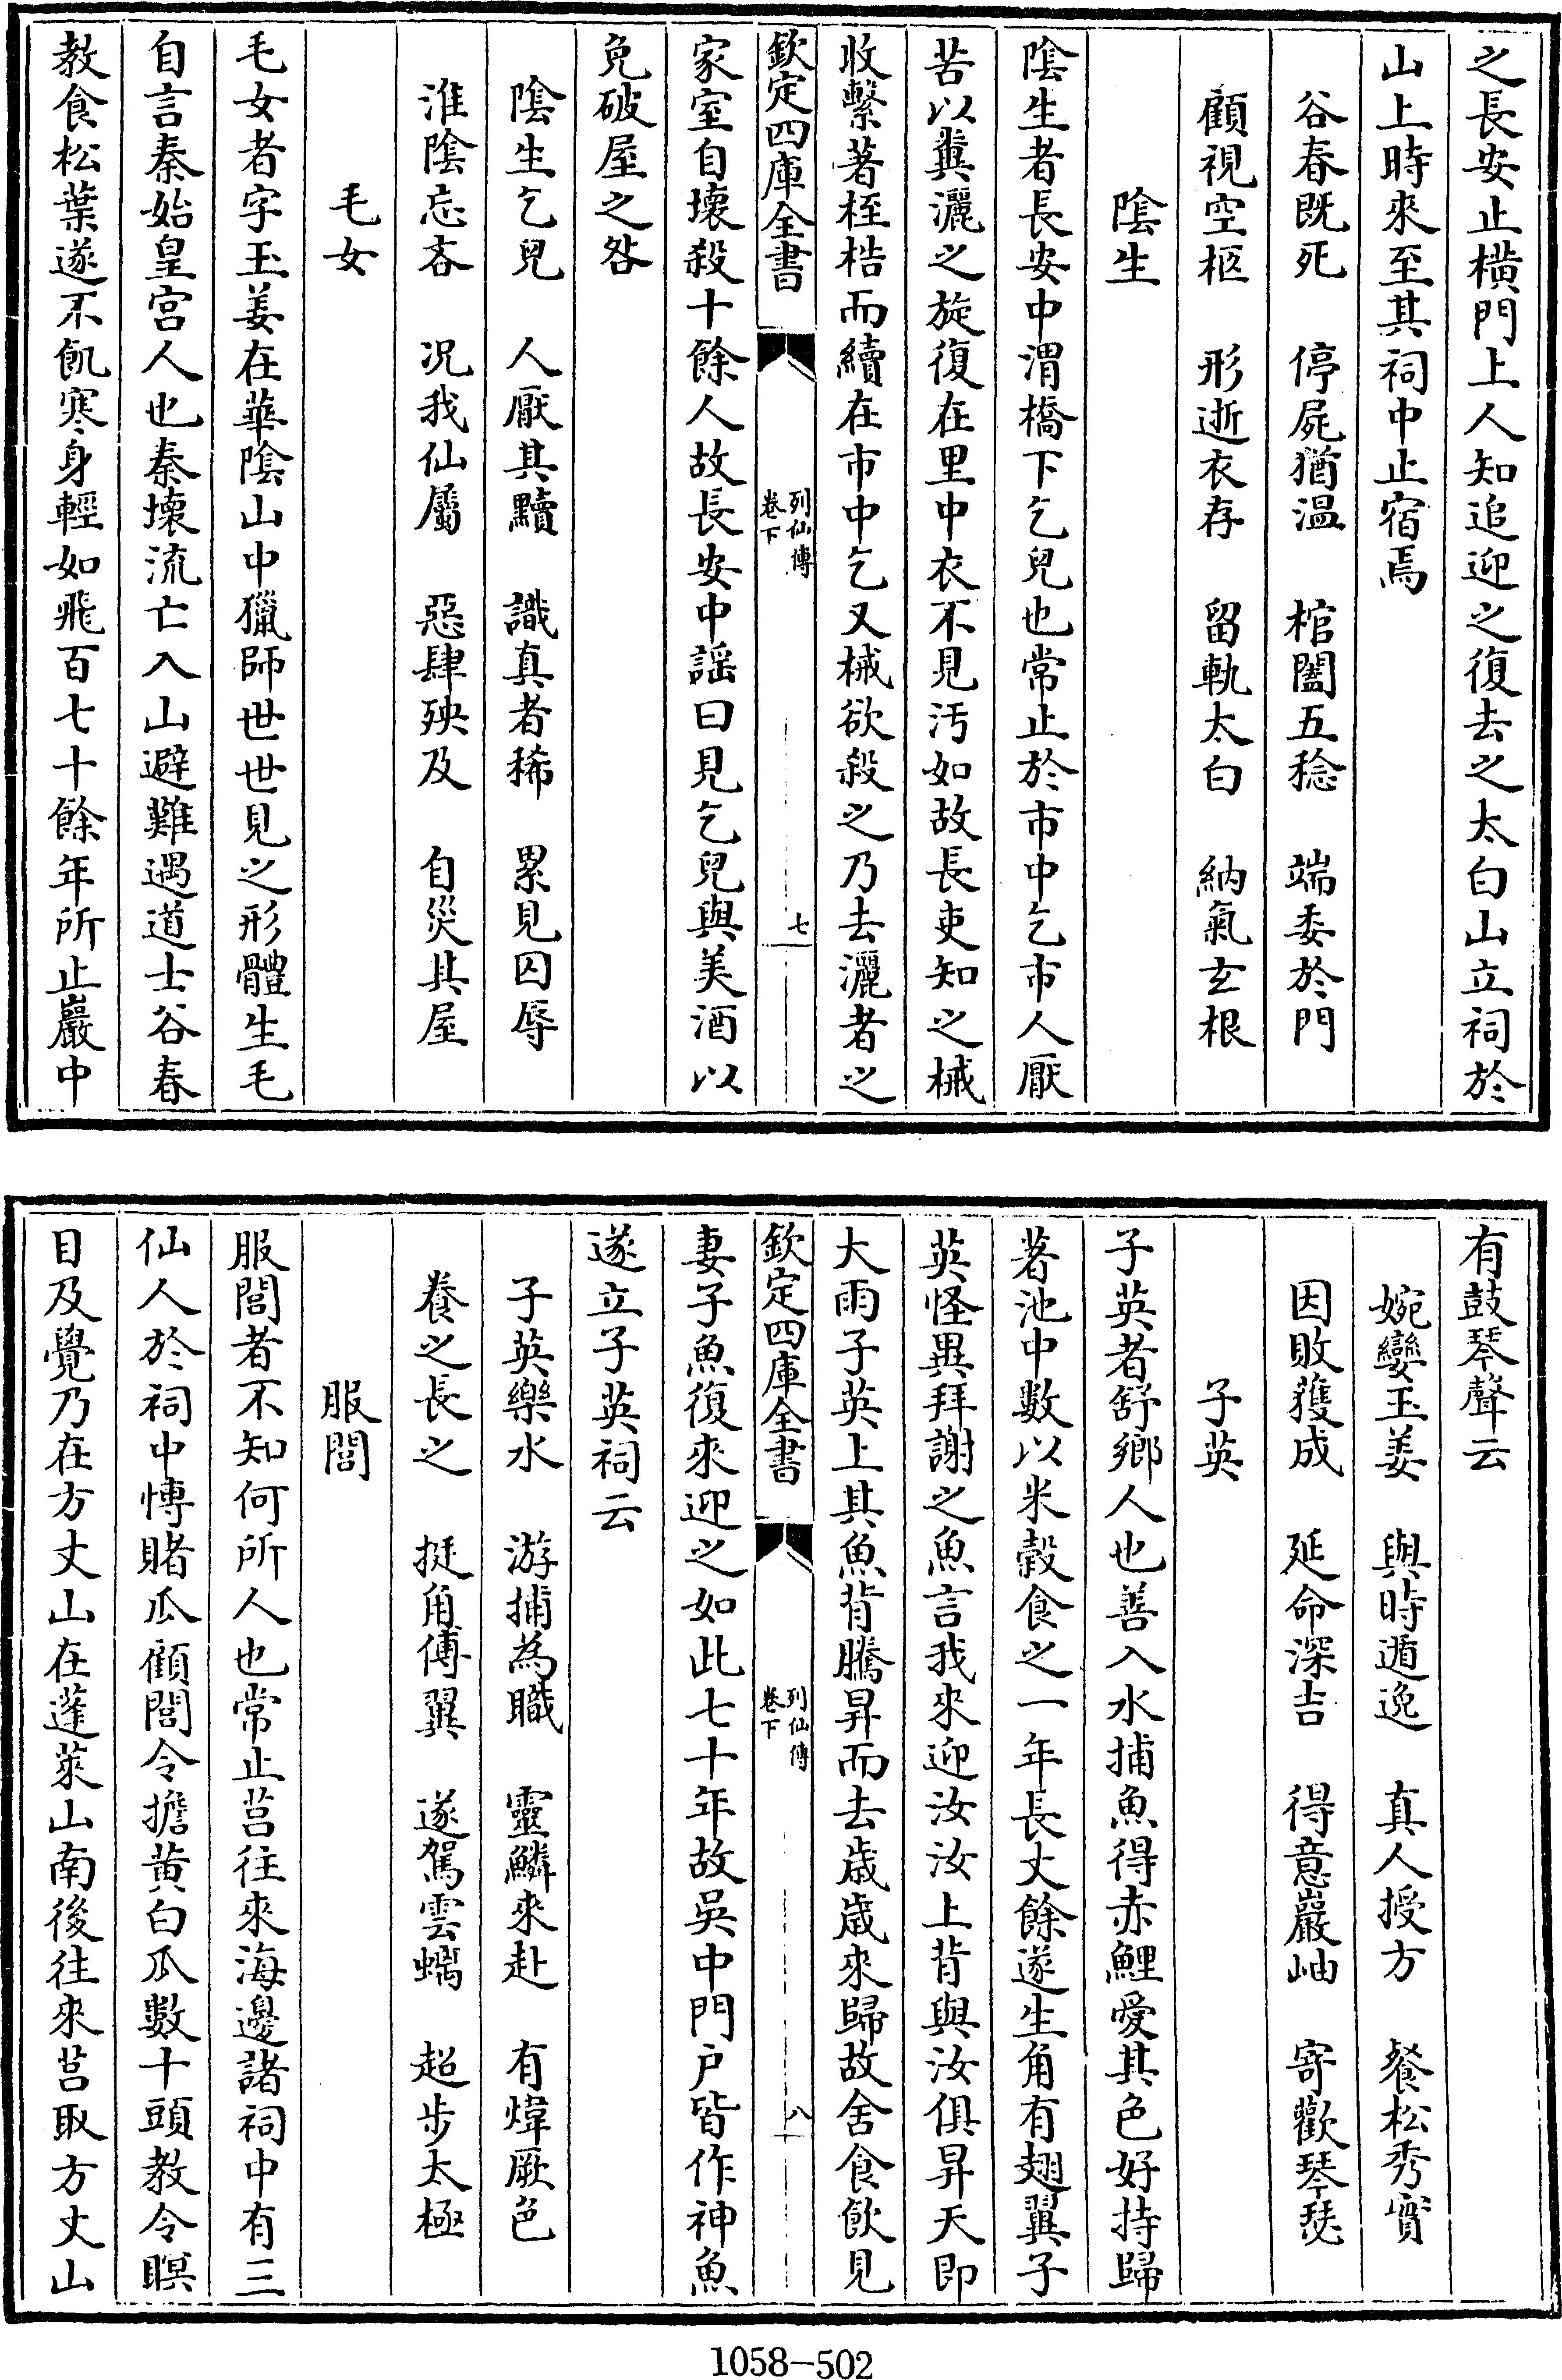 之長安止橫門上人知追迎之復去之太白山立祠於
山上時來至其祠中止宿焉
谷春既死　停屍猶温　棺闔五稔　端委於門
顧視空柩　形逝衣存　留軌太白　納氣玄根
陰生
陰生者長安中渭橋下乞兒也常止於市中乞市人厭
苦以糞灑之旋復在里中衣不見汚如故長吏知之械
收繫著桎梏而續在市中乞又械欲殺之乃去灑者之
欽定四庫全書　列仙傳　卷下　七
家室自壞殺十餘人故長安中謡曰見乞兒與美酒以
免破屋之咎
陰生乞兒　人厭其黷　識真者稀　累見囚辱
淮陰忘吝　况我仙屬　惡肆殃及　自災其屋
毛女
毛女者字玉姜在華陰山中獵師世世見之形體生毛
自言秦始皇宫人也秦壞流亡入山避難遇道士谷春
教食松葉遂不飢寒身輕如飛百七十餘年所止巖中
有鼓琴聲云
婉孌玉姜　與時遁逸　真人授方　餐松秀實
因敗獲成　延命深吉　得意巖岫　寄歡琴瑟
子英
子英者舒鄉人也善入水捕魚得赤鯉愛其色好持歸
著池中數以米穀食之一年長丈餘遂生角有翅翼子
英怪異拜謝之魚言我來迎汝汝上背與汝俱昇天即
大雨子英上其魚背騰昇而去歲歲來歸故舍食飲見
欽定四庫全書　列仙傳　卷下　八
妻子魚復來迎之如此七十年故吳中門户皆作神魚
遂立子英祠云
子英樂水　游捕為職　靈鱗來赴　有煒厥色
養之長之　挺角傅翼　遂駕雲螭　超步太極
服閭
服閭者不知何所人也常止莒往來海邊諸祠中有三
仙人於祠中慱賭瓜顧閭令擔黄白瓜數十頭教令瞑
目及覺乃在方丈山在蓬萊山南後往來莒取方丈山
1058-502